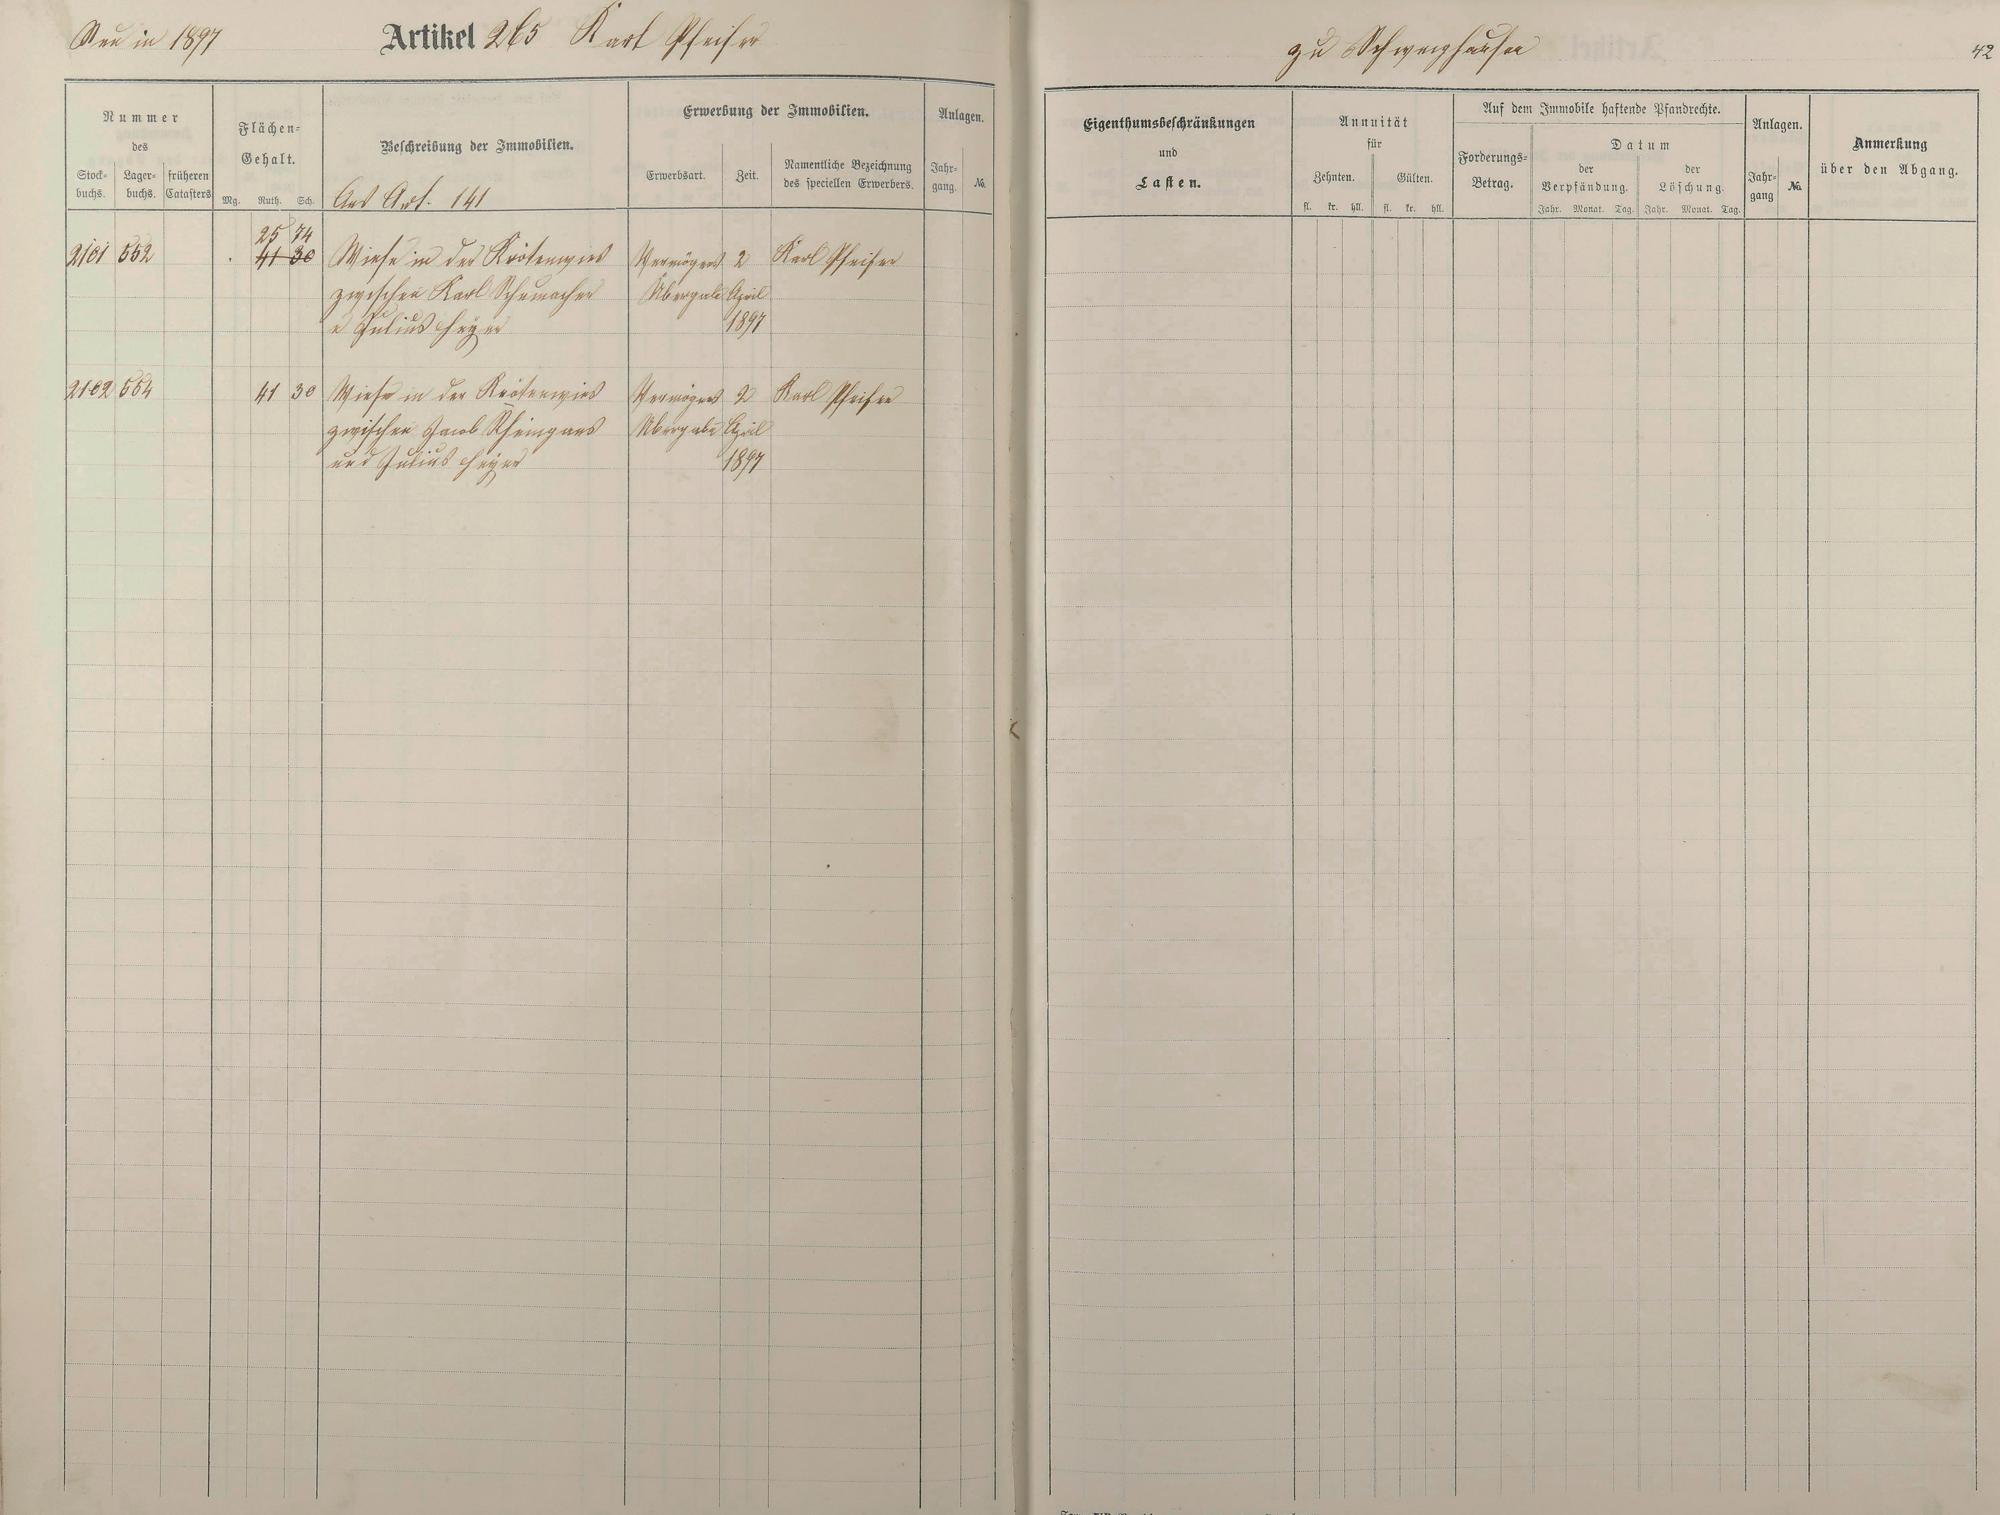 Neu in 1897 Artikel 265 Karl Pfeifer
zu Schweighausen 42
Nummer
des
Stock-buchs. Lager-buchs. früheren Catasters
Flächen-
Gehalt.
Mg. Ruth. Sch.
Beschreibung der Immobilien.
Aus Art. 141
Erwerbung der Immobilien.
Erwerbsart. Zeit. Namentliche Bezeichnung
des speciellen Erwerbers.
Anlagen.
Jahr-
gang. №.
25 74
2101 552 41 30 Wiese in der Krötenwies Vermögens 2 Karl Pfeifer
zwischen Karl Schumacher Übergabe April
u Julius Heyer 1897
2102 554 41 30 Wiese in der Krötenwies Vermögens 2 Karl Pfeifer
zwischen Jacob Rheingans Übergabe April
und Julius Heyer 1897
Eigenthumsbeschränkungen
und
Lasten.
Annuität
für
Zehnten. Gülten.
fl. kr. hll. fl. kr. hll.
Auf dem Immobile haftende Pfandrechte.
Forderungs-
Betrag.
Datum
der
Verpfändung.
der
Löschung.
Jahr. Monat. Tag. Jahr. Monat. Tag.
Anlagen.
Jahr-
gang №.
Anmerkung
über den Abgang.